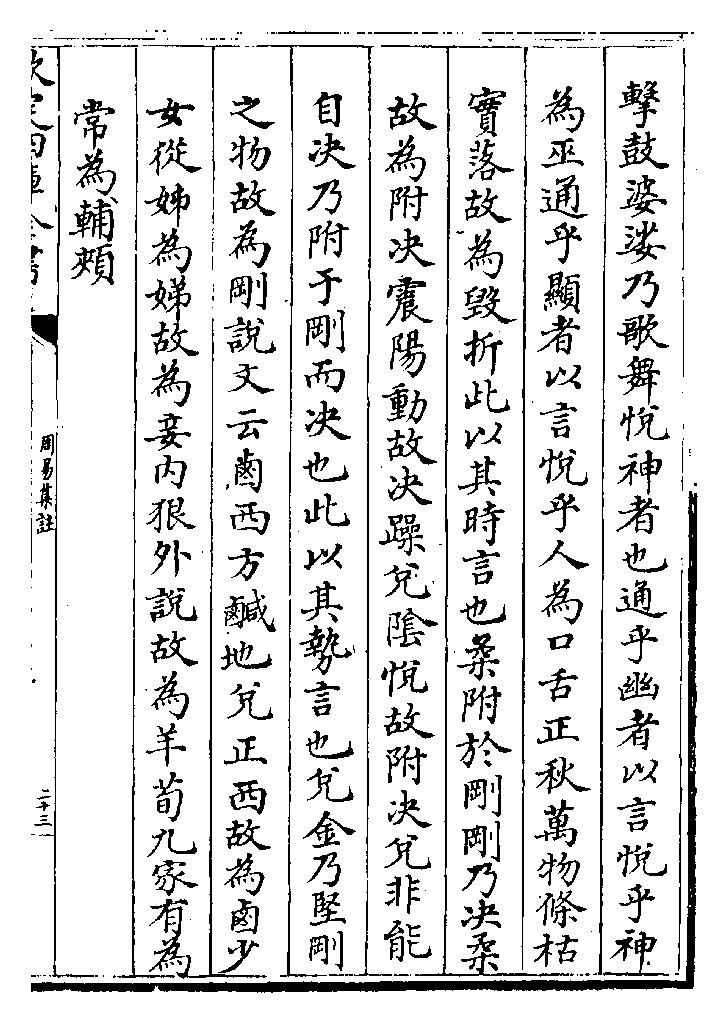 擊鼓婆娑乃歌舞悅神者也通乎幽者以言悅乎神
為巫通乎顯者以言悅乎人為口舌正秋萬物條枯
實落故為毀折此以其時言也柔附於剛剛乃决柔
故為附决震陽動故决躁兌陰悅故附决兌非能
自决乃附于剛而决也此以其勢言也兌金乃堅剛
之物故為剛說文云鹵西方鹹地兌正西故為鹵少
女從姊為娣故為妾内狠外說故為羊荀九家有為
常為輔頰
欽定四庫全書
周易集註
二十三